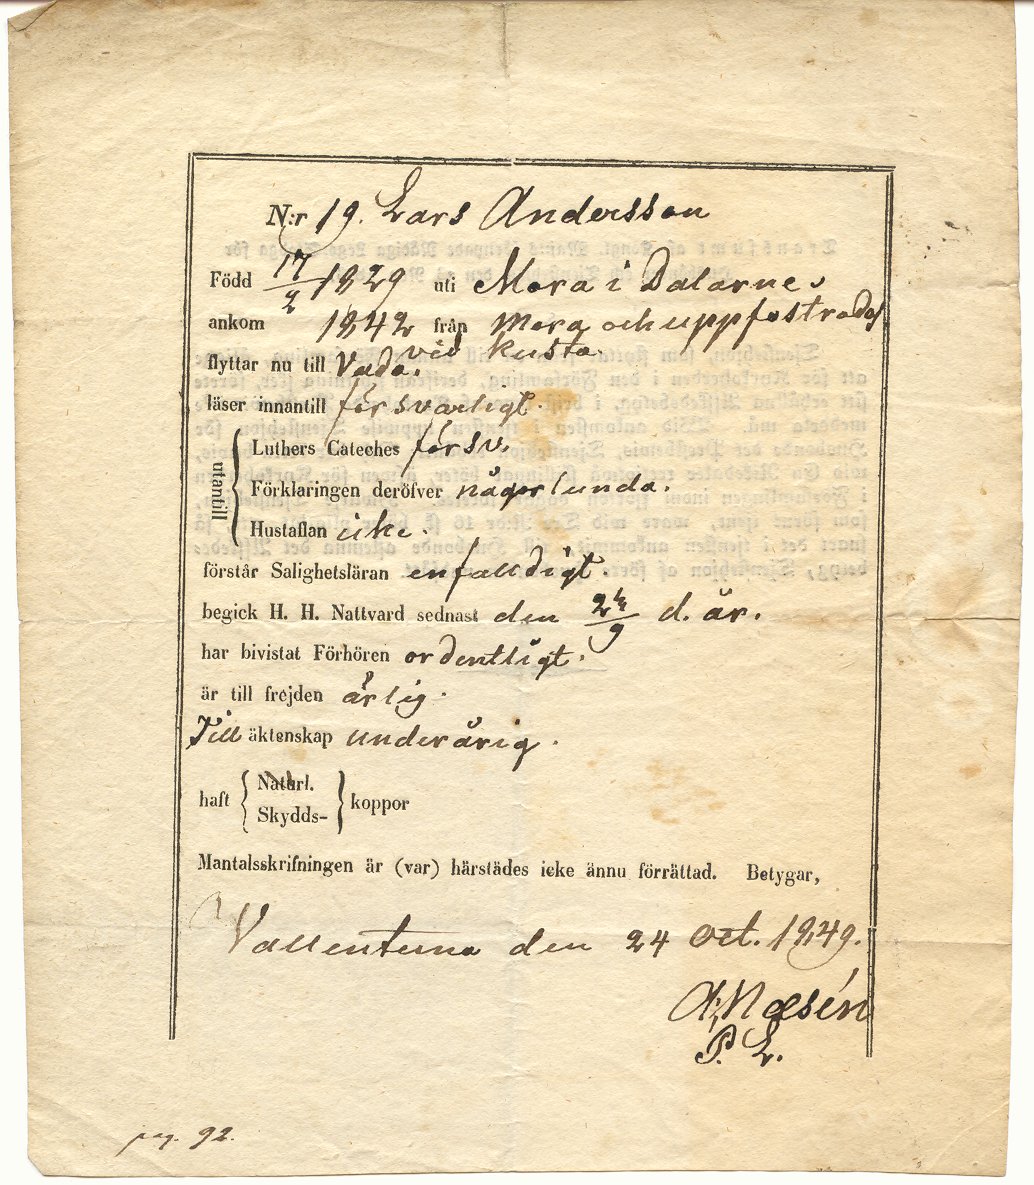 N:r 19. Lars Andersson
Född 17/2 1829 uti Mora i Dalarne.
ankom 1842 från Mora och uppfostrades
vid Kusta.
flyttar nu till Vada.
läser innantill försvarligt.
utantill
Luthers Cateches försv.
Förklaringen deröfver någorlunda.
Hustaflan icke.
förstår Salighetsläran enfalldigt.
begick H. H. Nattvard sednast den /9 d. år.
har bivistat Förhören ordentligt.
är till frejden ärlig.
Till äktenskap underårig.
haft { Naturl. Skydds- } koppor
Mantalsskrifningen är (var) härstädes icke ännu förrättad. Betygar,
Vallentuna den 24 Oct. 1849.
Næsén
P. L.
pag. 92.